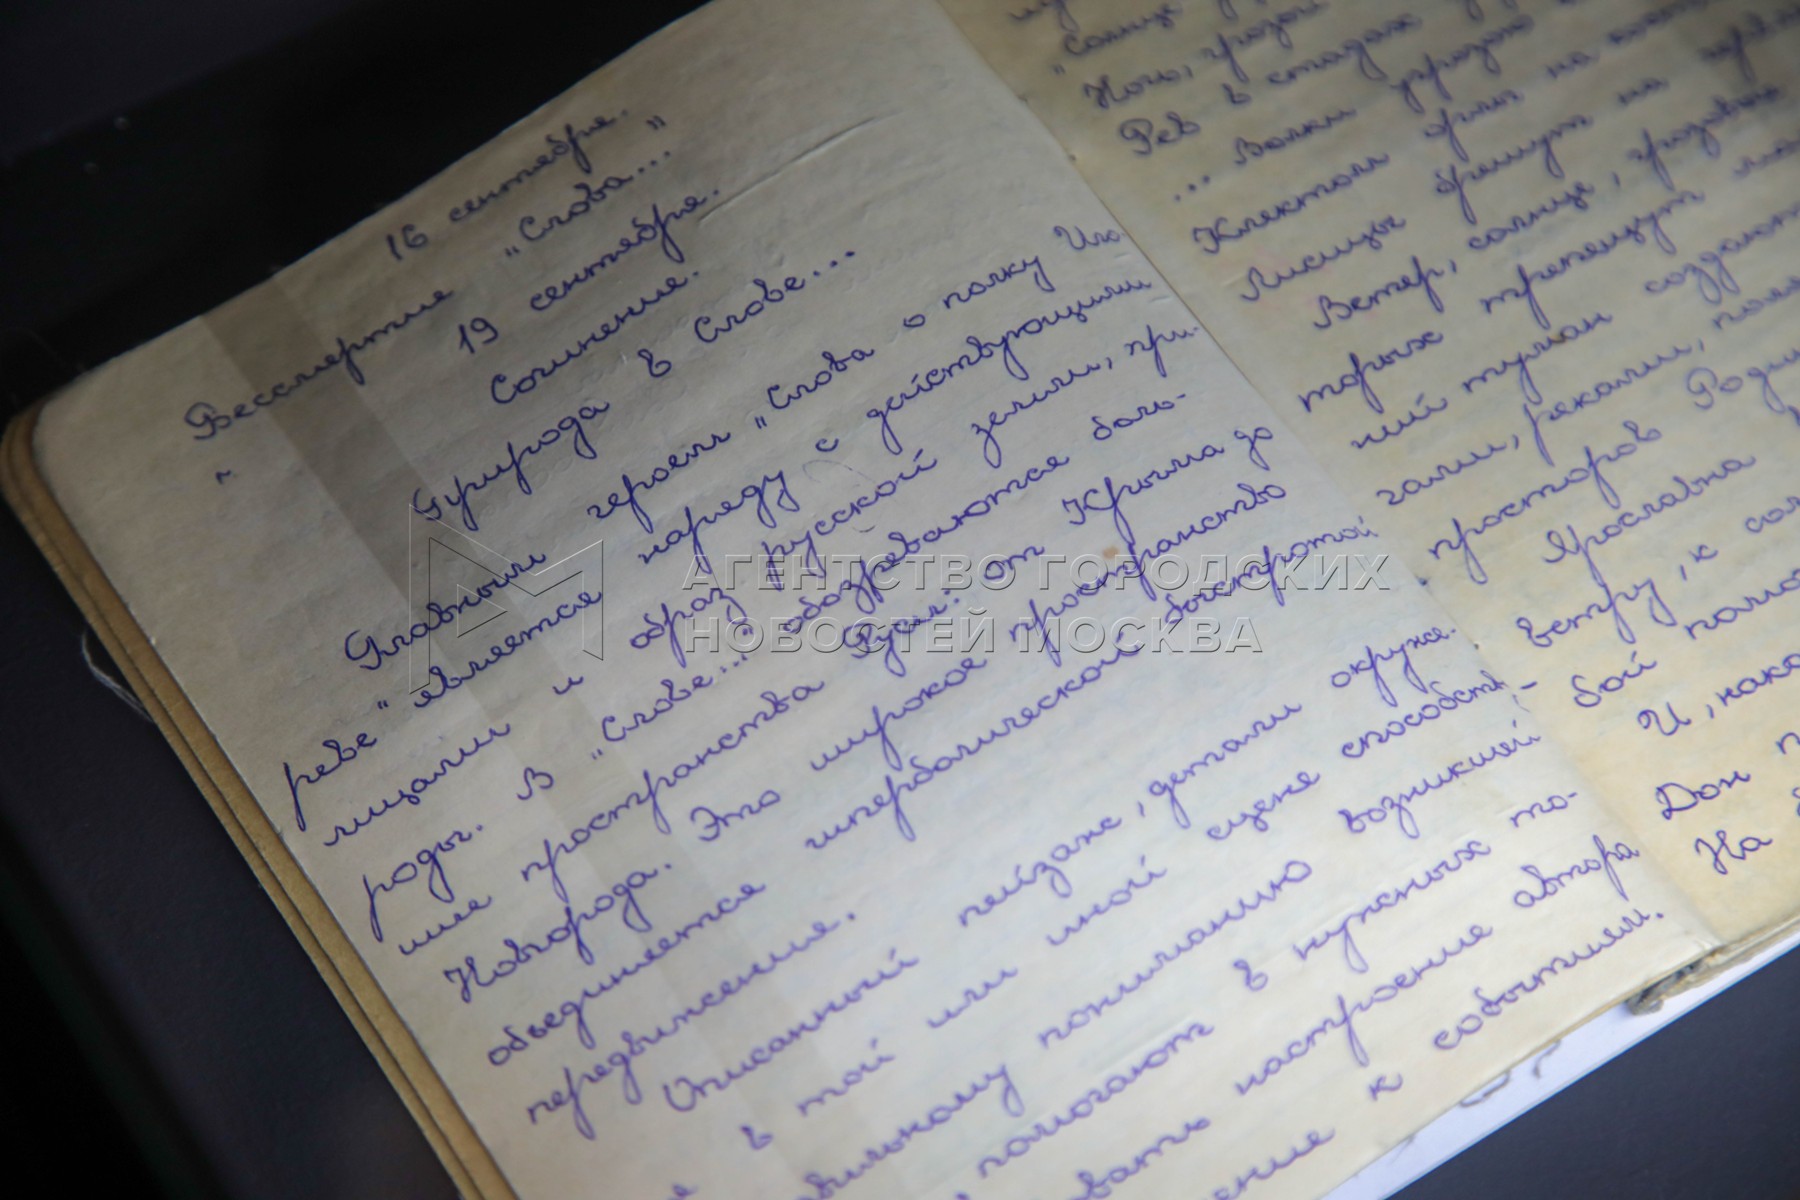 16 сентября.
Бессмертие „Слова..."
19 сентября.
Сочинение.
Природа в Слове...
Главным героем „Слова о полку Иго-
реве" является наряду с действующими
лицами и образ русской земли, при-
роды. В „Слове..." обозреваются боль-
шие пространства Руси: от Крыма до
Новгорода. Это широкое пространство
объединяется гиперболической быстротой
передвижения.
Описанный пейзаж, детали окруже-
в той или иной сцене способст-
пониманию возникшей
помогают в нужных то-
настроение автора
к событиям.
„Солнце
Ночь, грозой
Рев в стадах
... Волки грозою
Клектом орлы на
Лисицы брешут на
Ветер, солнце, грозовые
торых трепещут
ний туман создают
гами, реками, поля
просторов Роди
Ярославна
ветру, к сол
бой помо
И, нако
Дон
На
АГЕНТСТВО ГОРОДСКИХ
НОВОСТЕЙ МОСКВА